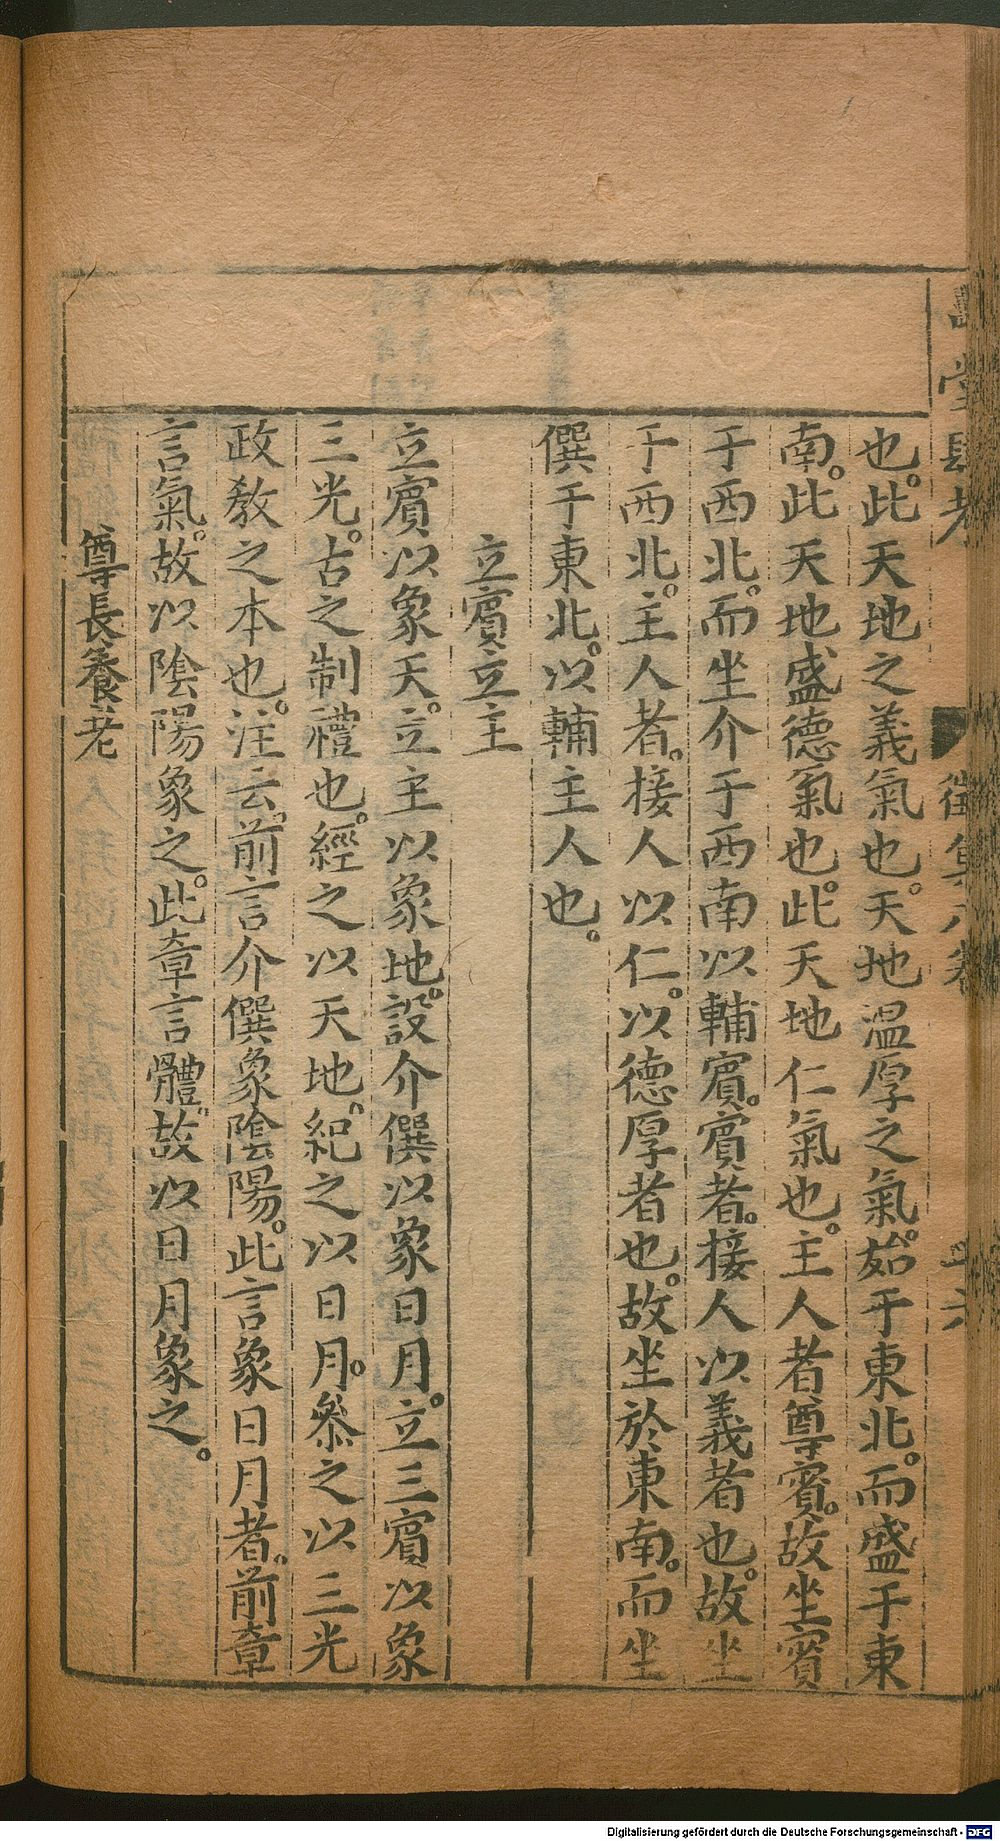 堂肆考 徵集 卷
也。此天地之義氣也。天地温厚之氣。始于東北。而盛于東
南。此天地盛德氣也。此天地仁氣也。主人者尊賓。故坐賓
于西北。而坐介于西南以輔賓。賓者。接人以義者也。故坐
于西北。主人者。接人以仁。以德厚者也。故坐於東南。而坐
僎于東北。以輔主人也。
立賓立主
立賓以象天。立主以象地。設介僎以象日月。立三賓以象
三光。古之制禮也。經之以天地。紀之以日月。叅之以三光
政敎之本也。注云。前言介僎象陰陽。此言象日月者。前章
言氣。故以陰陽象之。此章言體。故以日月象之。
尊長養老
Digitalisierung gefördert durch die Deutsche Forschungsgemeinschaft - DFG